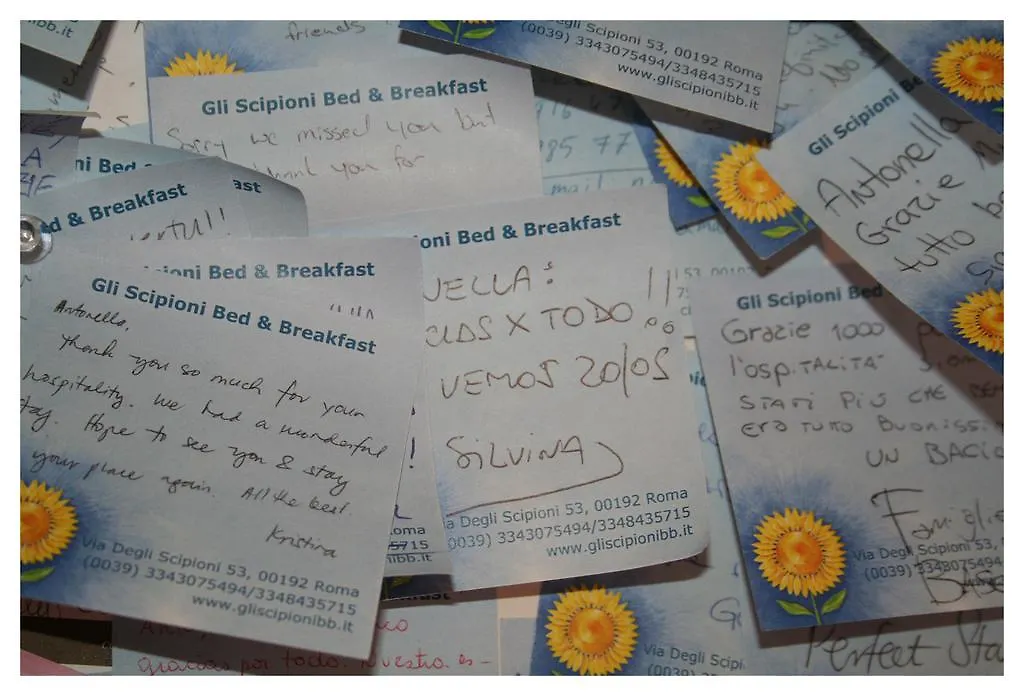 ibb.it
friends
Degli Scipioni 53, 00192 Roma
(0039) 3343075494/3348435715
www.gliscipionibb.it
Gli Scipioni Bed & Breakfast
Sorry we missed you but
you for
85 77
Gli Scipioni Be
Antonella
Grazie
tutto
ni Bed
ast
d & Breakfast
ioni Bed & Breakfast
Gli Scipioni Bed & Breakfast
Antonella,
Thank you so much for your
hospitality. We had a wonderful
stay. Hope to see you & stay
your place again. All the best.
Kristina
Via Degli Scipioni 53, 00192 Roma
(0039) 3343075494/3348435715
www.gliscipionibb.it
ioni Bed & Breakfast
JELLA:
X TODO !!
VEMOS 20/05
SILVINA
a Degli Scipioni 53, 00192 Roma
0039) 3343075494/3348435715
www.gliscipionibb.it
oma
5715
bb.it
Gli Scipioni Bed
Grazie 1000
l'OSPITALITA'
STATI PIÙ CHE
ERA TUTTO BUONISSI
UN BACIO
Famiglia
Via Degli Scipioni 53,
(0039) 3348075
gracias por todo. Nuestra es-
Via Degli Scipi
(0039)
Perfect Sta